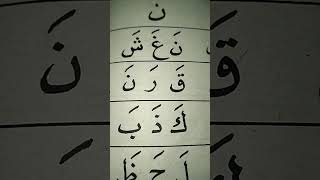 ن
نَ غَ شَ
قَ رَ نَ
كَ ذَ بَ
لَ حَ ظَ